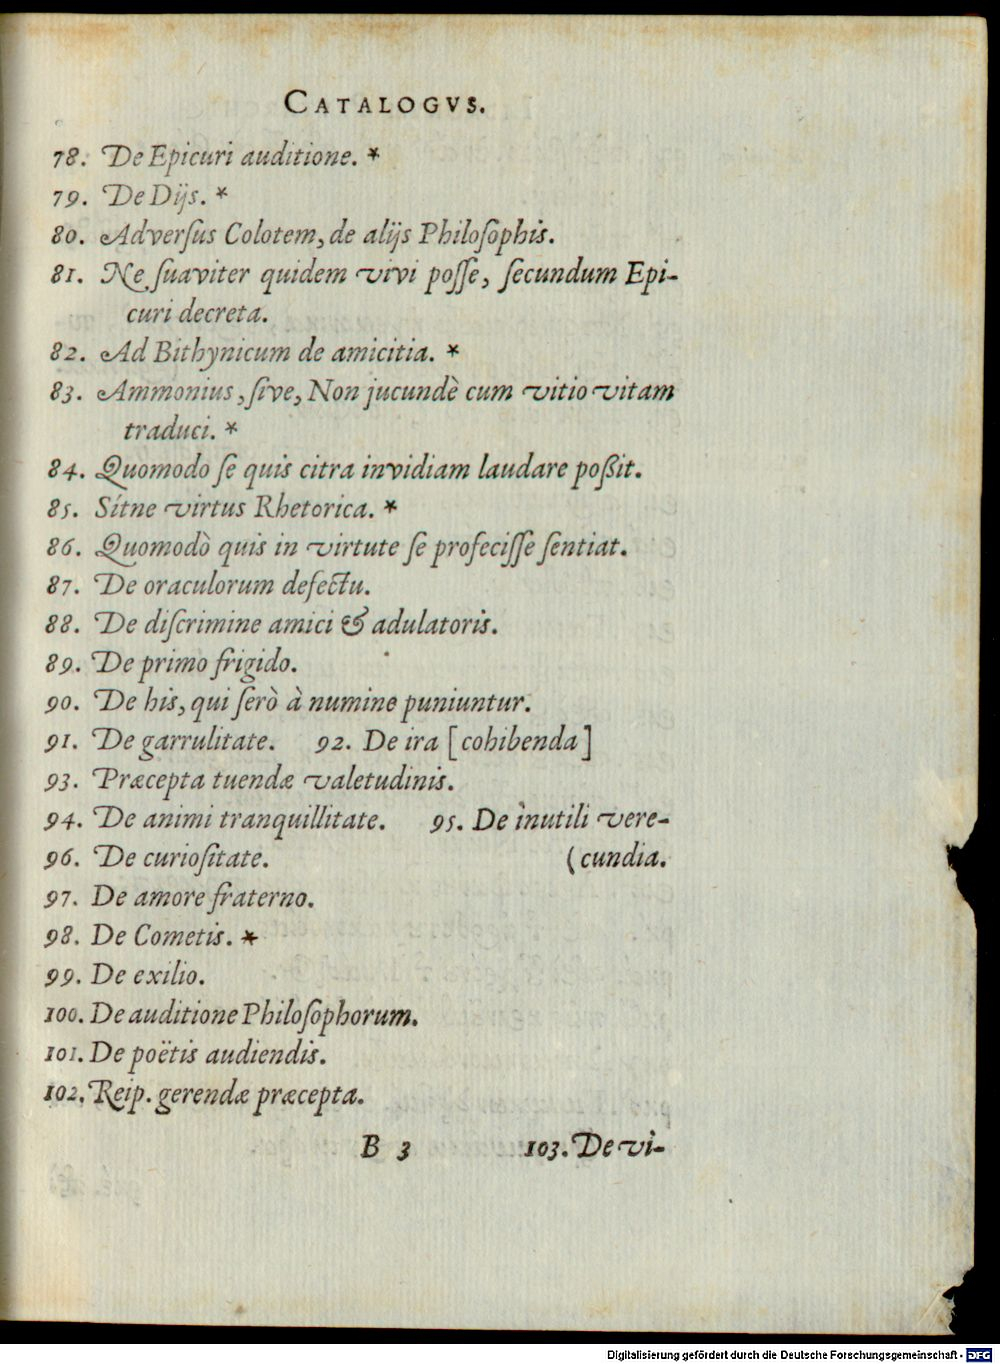 CATALOGVS.
78. De Epicuri auditione. *
79. De Dijs. *
80. Adverſus Colotem, de alijs Philoſophis.
81. Ne ſuaviter quidem vivi poſſe, ſecundum Epi-
curi decreta.
82. Ad Bithynicum de amicitia. *
83. Ammonius, ſive, Non jucundè cum vitio vitam
traduci. *
84. Quomodo ſe quis citra invidiam laudare poßit.
85. Sítne virtus Rhetorica. *
86. Quomodò quis in virtute ſe profeciſſe ſentiat.
87. De oraculorum defectu.
88. De diſcrimine amici & adulatoris.
89. De primo frigido.
90. De his, qui ſerò à numine puniuntur.
91. De garrulitate. 92. De ira [cohibenda]
93. Præcepta tuendæ valetudinis.
94. De animi tranquillitate. 95. De inutili vere-
96. De curioſitate. (cundia.
97. De amore fraterno.
98. De Cometis. *
99. De exilio.
100. De auditione Philoſophorum.
101. De poëtis audiendis.
102. Reip. gerendæ præcepta.
B 3 103. De vi-
Digitalisierung gefördert durch die Deutsche Forschungsgemeinschaft - DFG